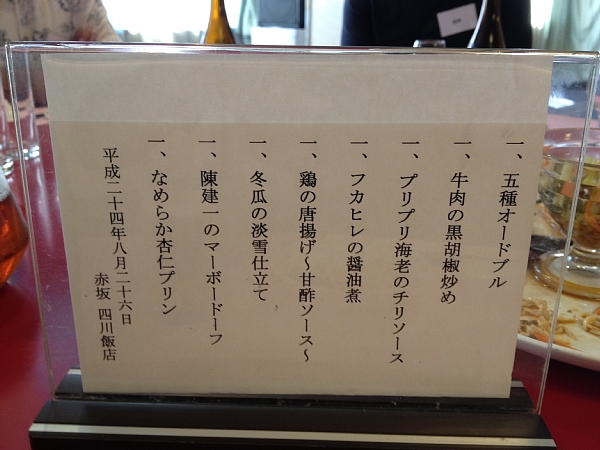 一、五種オードブル
一、牛肉の黒胡椒炒め
一、プリプリ海老のチリソース
一、フカヒレの醤油煮
一、鶏の唐揚げ～甘酢ソース～
一、冬瓜の淡雪仕立て
一、陳建一のマーボードーフ
一、なめらか杏仁プリン
平成二十四年八月二十六日
赤坂 四川飯店